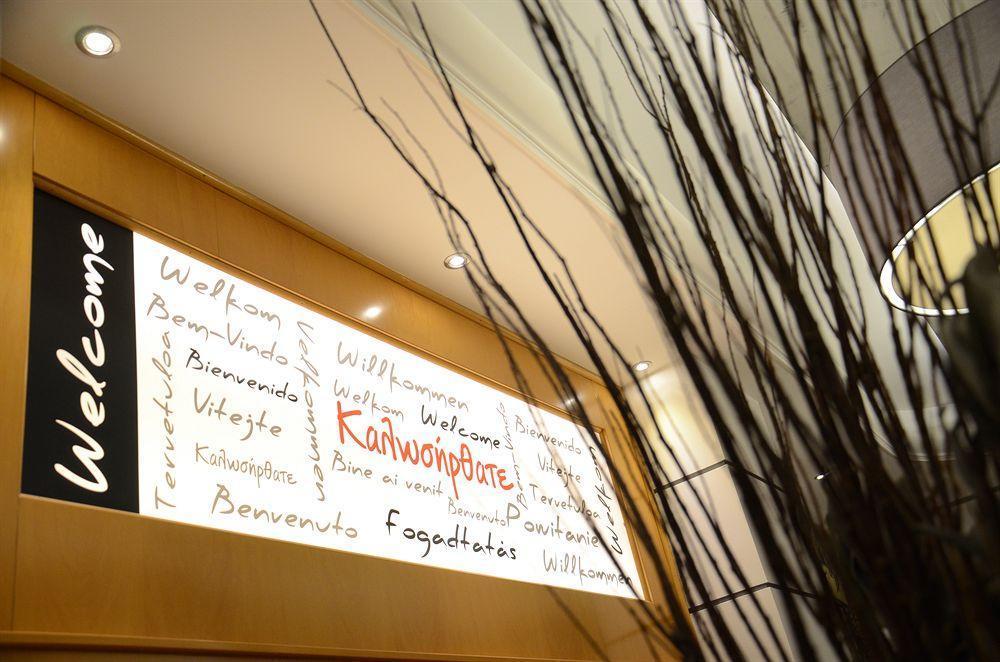 Welcome
Welkom
Bem-Vindo
Bienvenido
Vitejte
Καλωσήρθατε
Benvenuto
Tervetuloa
Velkommen
Willkommen
Welkom
Welcome
Καλωσήρθατε
Bine ai venit
Benvenuto
Fogadtatás
Bienvenido
Vitejte
Tervetuloa
Powitanie
Willkommen
Welkom